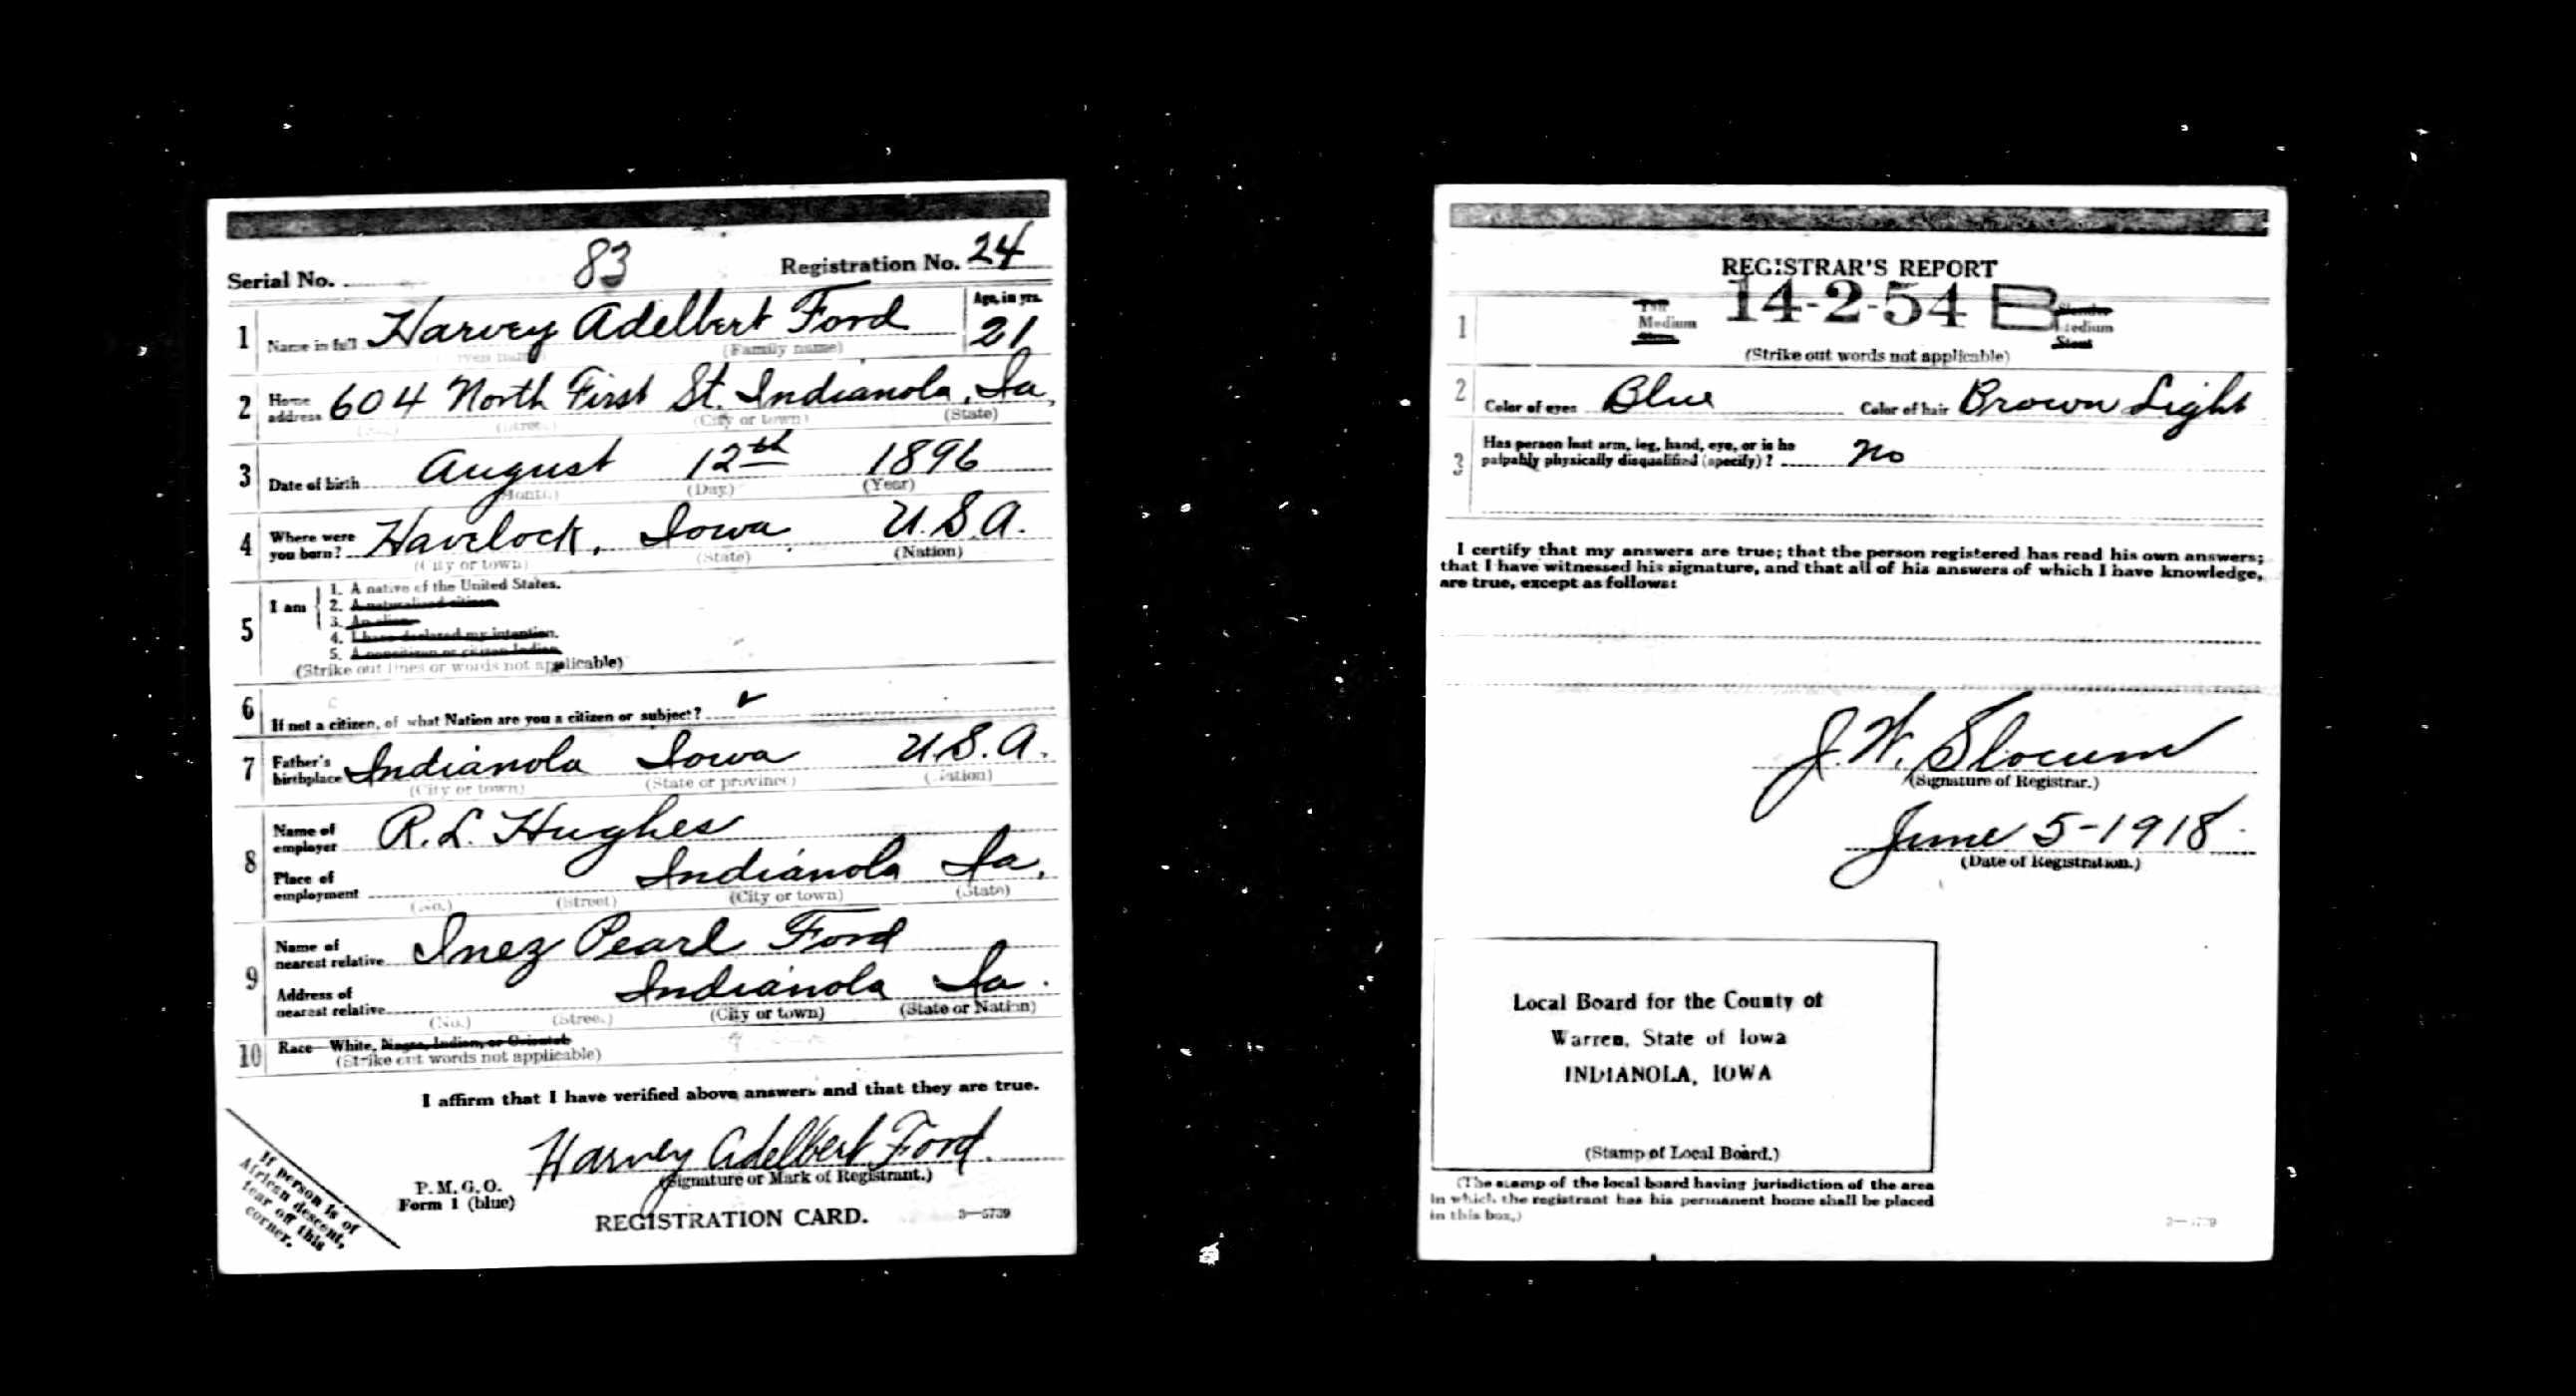 Serial No. 83 Registration No. 24
1 Name in full Harvey Adelbert Ford Age, in yrs. 21
(Family name)
2 Home address 604 North First St. Indianola, Ia,
(City or town) (State)
3 Date of birth August 12th 1896
(Month) (Day) (Year)
4 Where were you born? Havelock, Iowa U.S.A.
(City or town) (State) (Nation)
5 I am
1. A native of the United States.
2. A naturalized citizen.
3. An alien.
4. I have declared my intention.
5. A noncitizen or citizen Indian.
(Strike out lines or words not applicable)
6 If not a citizen, of what Nation are you a citizen or subject? ✓
7 Father's birthplace Indianola Iowa U.S.A.
(City or town) (State or province) (Nation)
8 Name of employer R. L. Hughes
Place of employment Indianola Ia.
(No.) (Street) (City or town) (State)
9 Name of nearest relative Inez Pearl Ford
Address of nearest relative Indianola Ia.
(No.) (Street) (City or town) (State or Nation)
10 Race—White, Negro, Indian, or Oriental
(Strike out words not applicable)
I affirm that I have verified above answers and that they are true.
Harvey Adelbert Ford.
(Signature or Mark of Registrant.)
P. M. G. O.
Form 1 (blue)
REGISTRATION CARD. 3—5739
If person is of
African descent,
tear off this
corner.
REGISTRAR'S REPORT
14-2-54 B
1 Tall Medium Slender Medium Stout
(Strike out words not applicable)
2 Color of eyes Blue Color of hair Brown Light
3 Has person lost arm, leg, hand, eye, or is he
palpably physically disqualified (specify)? No
I certify that my answers are true; that the person registered has read his own answers;
that I have witnessed his signature, and that all of his answers of which I have knowledge,
are true, except as follows:
J. W. Slocum
(Signature of Registrar.)
June 5-1918.
(Date of Registration.)
Local Board for the County of
Warren, State of Iowa
INDIANOLA, IOWA
(Stamp of Local Board.)
(The stamp of the local board having jurisdiction of the area
in which the registrant has his permanent home shall be placed
in this box.)